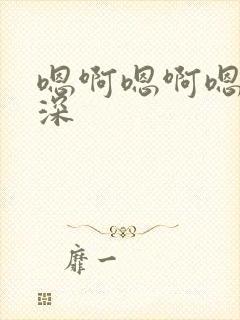 嗯啊嗯啊嗯
深
靡一